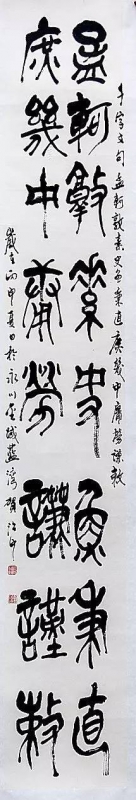 千字文句孟軻敦素史魚秉直庶幾中庸勞謙謹敕
孟軻敦素史魚秉直
庶幾中庸勞謙謹敕
歲在丙申夏日於永川金城藍灣